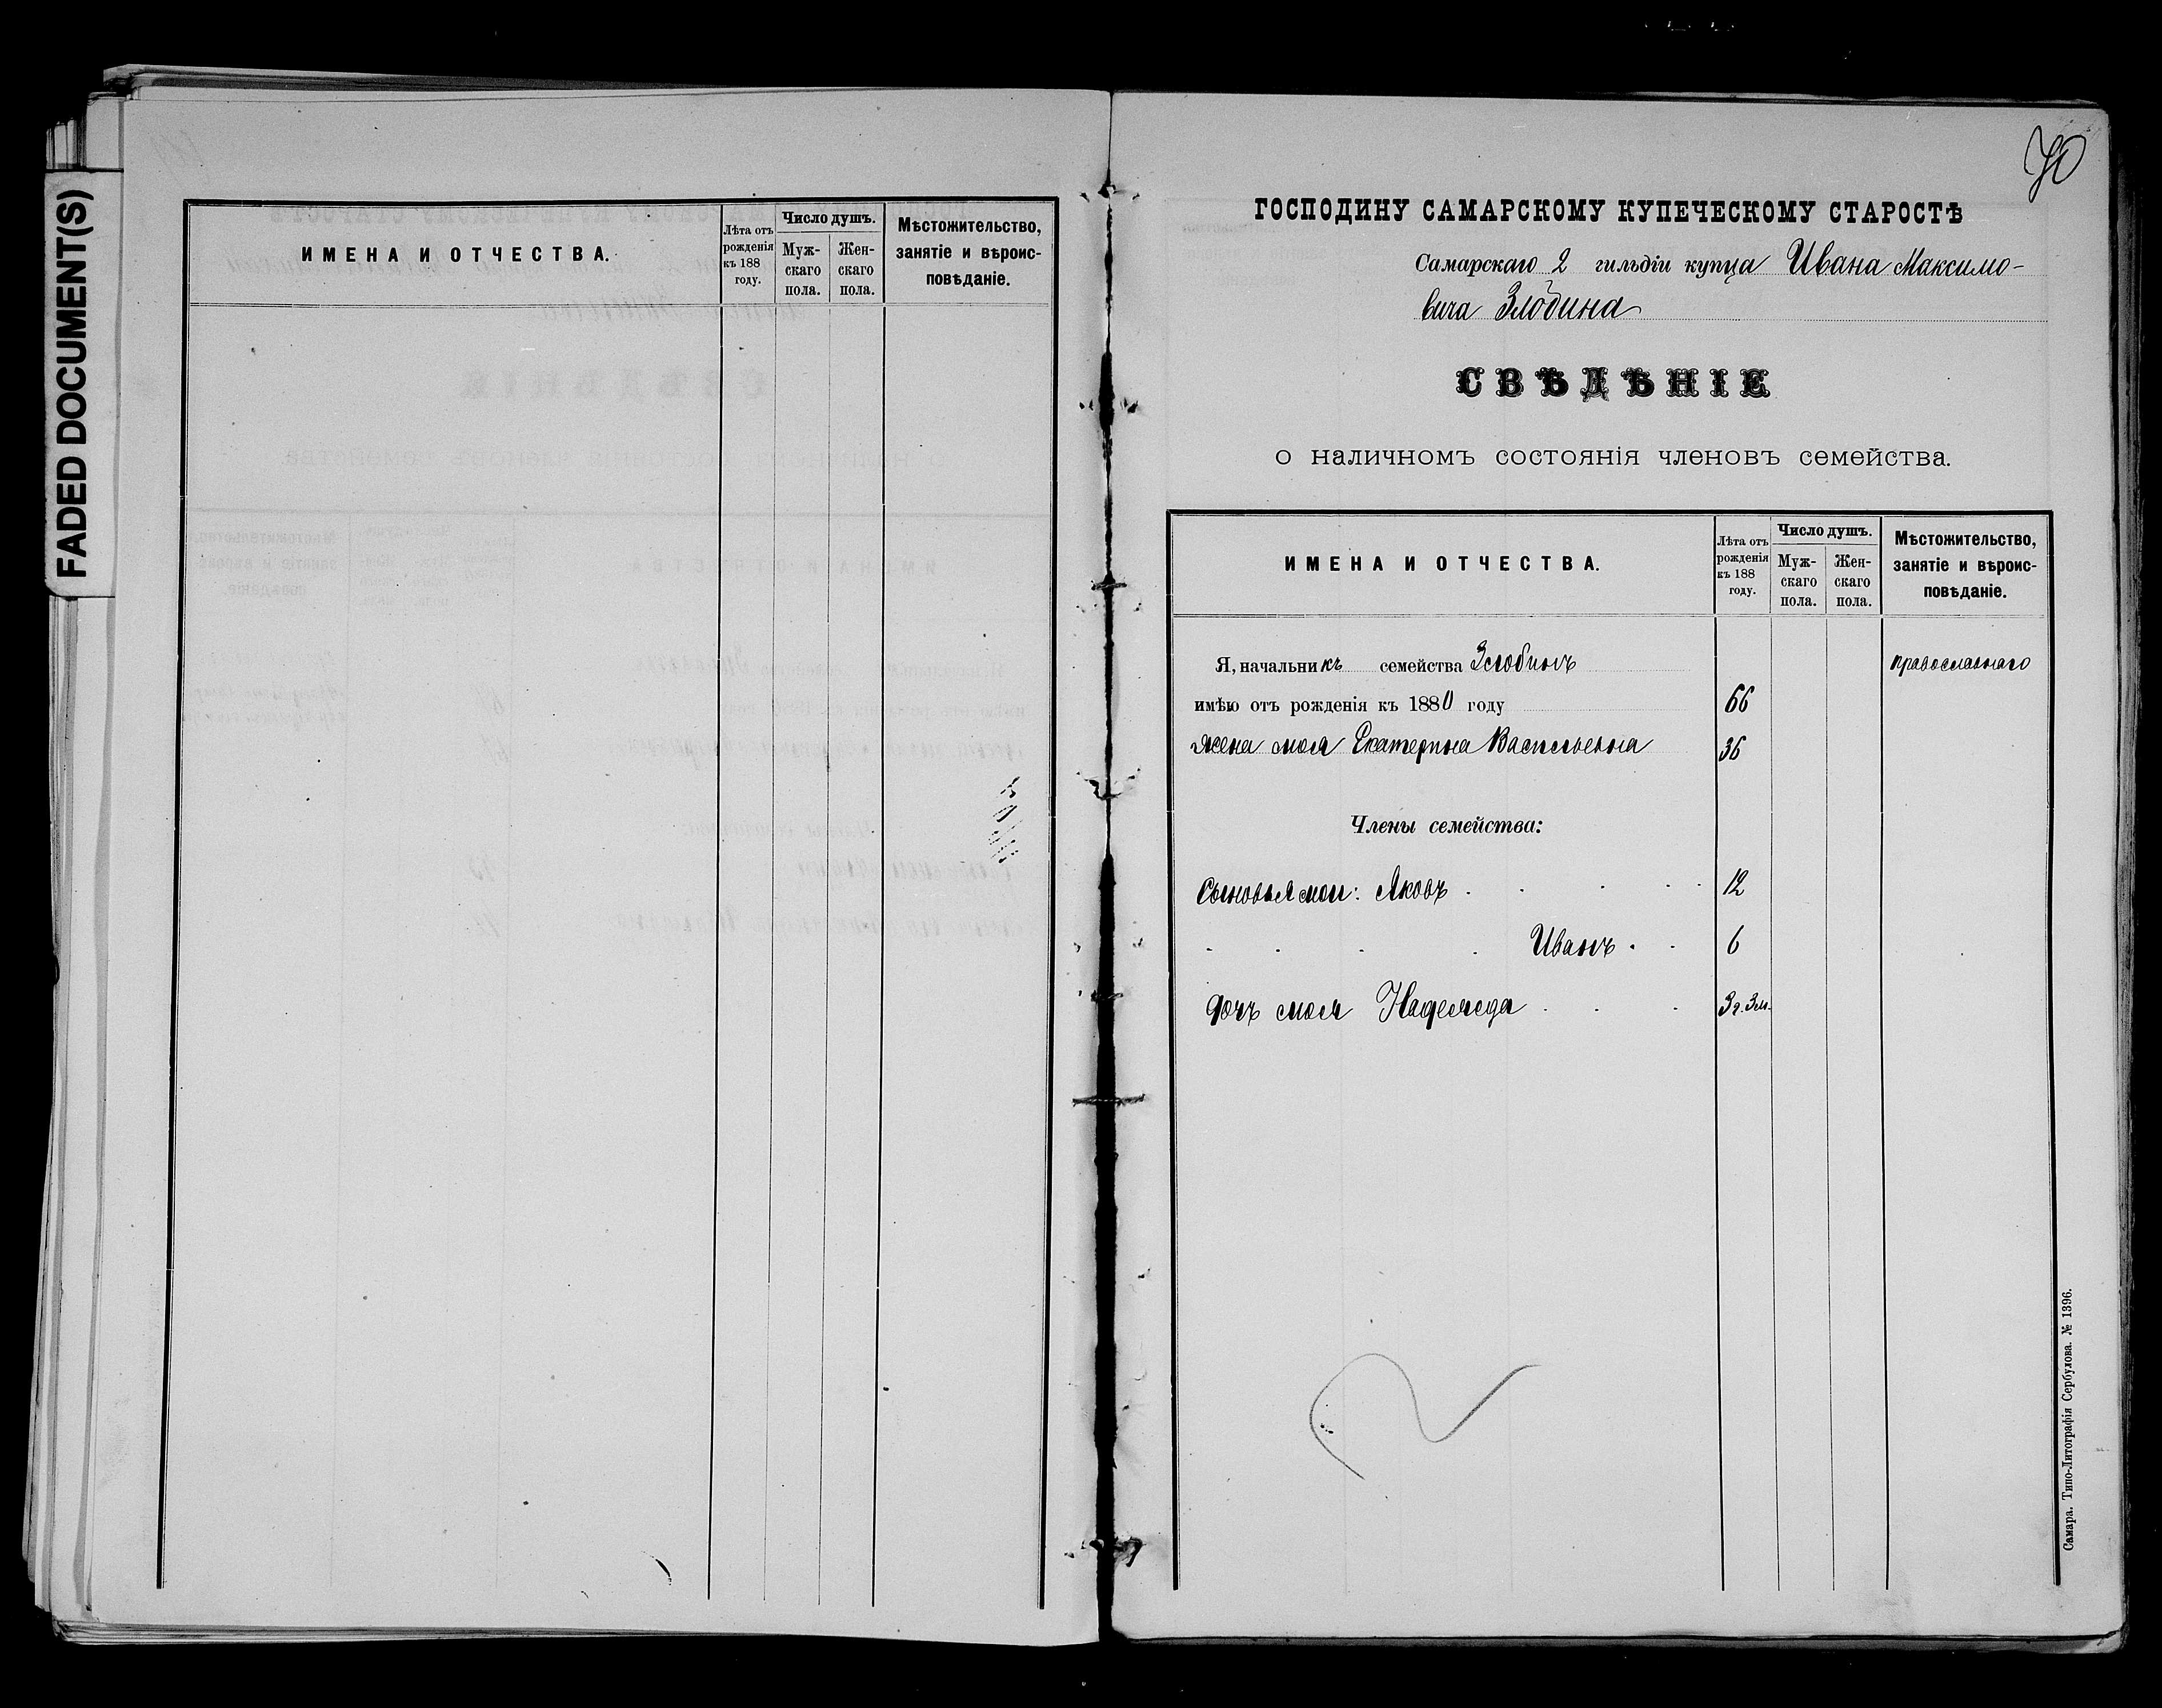 FADED DOCUMENT(S)
ИМЕНА И ОТЧЕСТВА.
Лѣта отъ рожденія къ 188 году.
Число душъ.
Мужскаго пола.
Женскаго пола.
Мѣстожительство, занятіе и вѣроисповѣданіе.
70
ГОСПОДИНУ САМАРСКОМУ КУПЕЧЕСКОМУ СТАРОСТѢ
Самарскаго 2 гильдіи купца Ивана Максимо-
вича Злобина
СВѢДѢНІЕ
о наличномъ состоянія членовъ семейства.
ИМЕНА И ОТЧЕСТВА.
Лѣта отъ
рожденія
къ 188
году.
Число душъ.
Муж-
скаго
пола.
Жен-
скаго
пола.
Мѣстожительство,
занятіе и вѣроис-
повѣданіе.
Я, начальникъ семейства Злобинъ православнаго
имѣю отъ рожденія къ 1880 году 66
жена моя Екатерина Васильевна 36
Члены семейства:
Сыновья мои: Яковъ 12
Иванъ 6
дочь моя Надежда 3 г. 3 м.
Самара. Типо-Литографія Сербулова. № 1396.